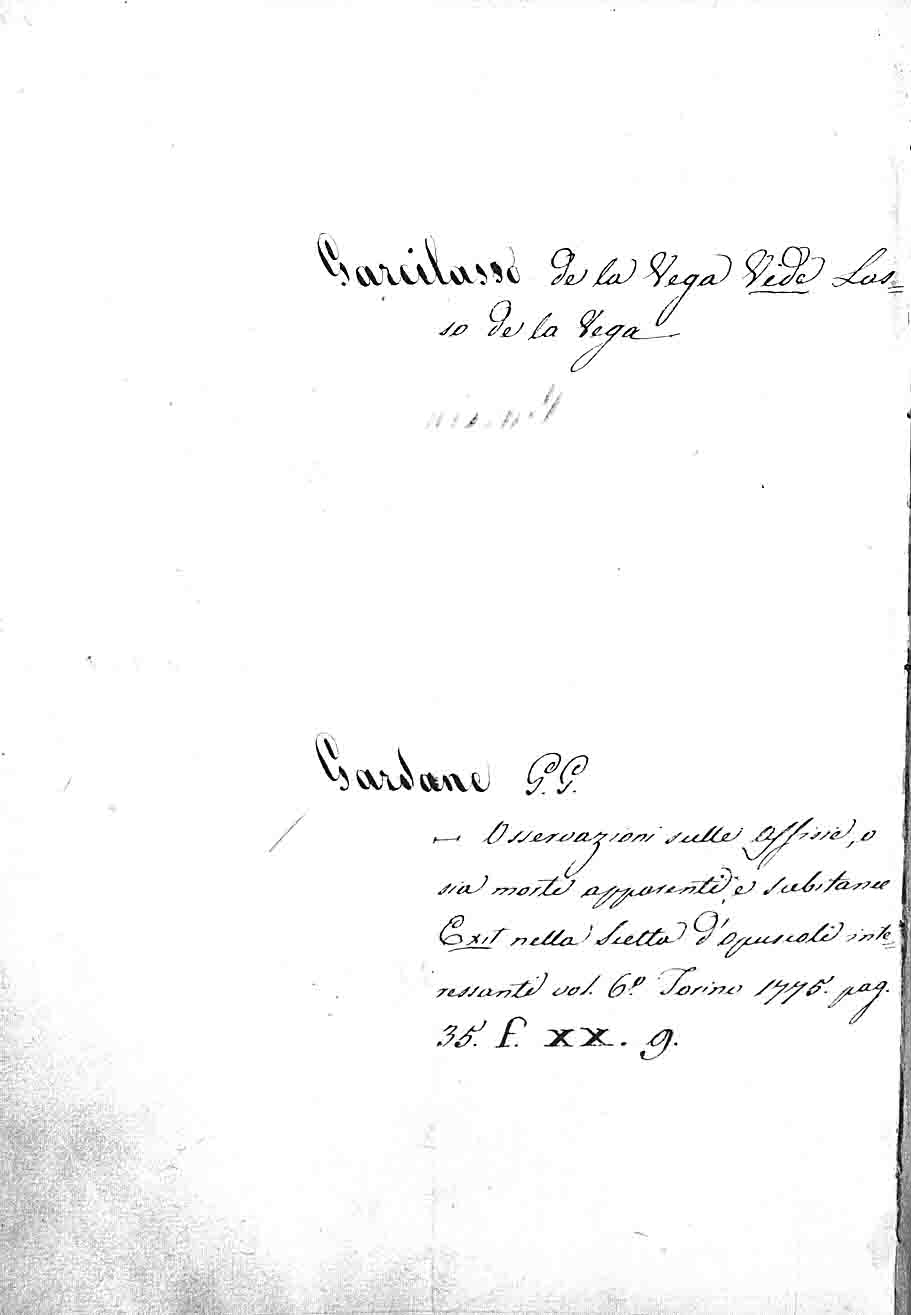 Garcilasso de la Vega Vide Las=
so de la Vega
Gardane G. G.
— Osservazioni sulle Affisie, o
sia morti apparenti, e subitanee
Exit nella Scelta d'opuscoli inte=
ressanti vol. 6º Torino 1775. pag.
35. f. XX. 9.